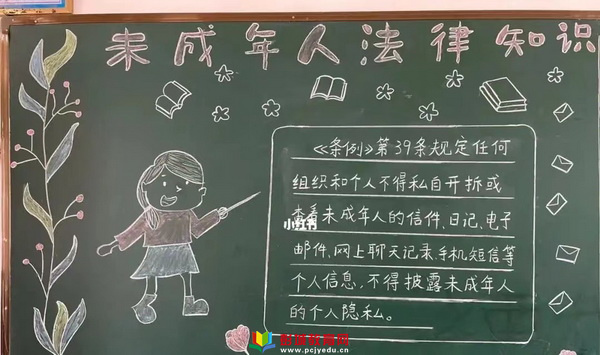 未成年人法律知识
《条例》第39条规定任何
组织和个人不得私自开拆或
查看未成年人的信件、日记、电子
邮件、网上聊天记录、手机短信等
个人信息,不得披露未成年人
的个人隐私。
小红书
www.pcjyedu.cn